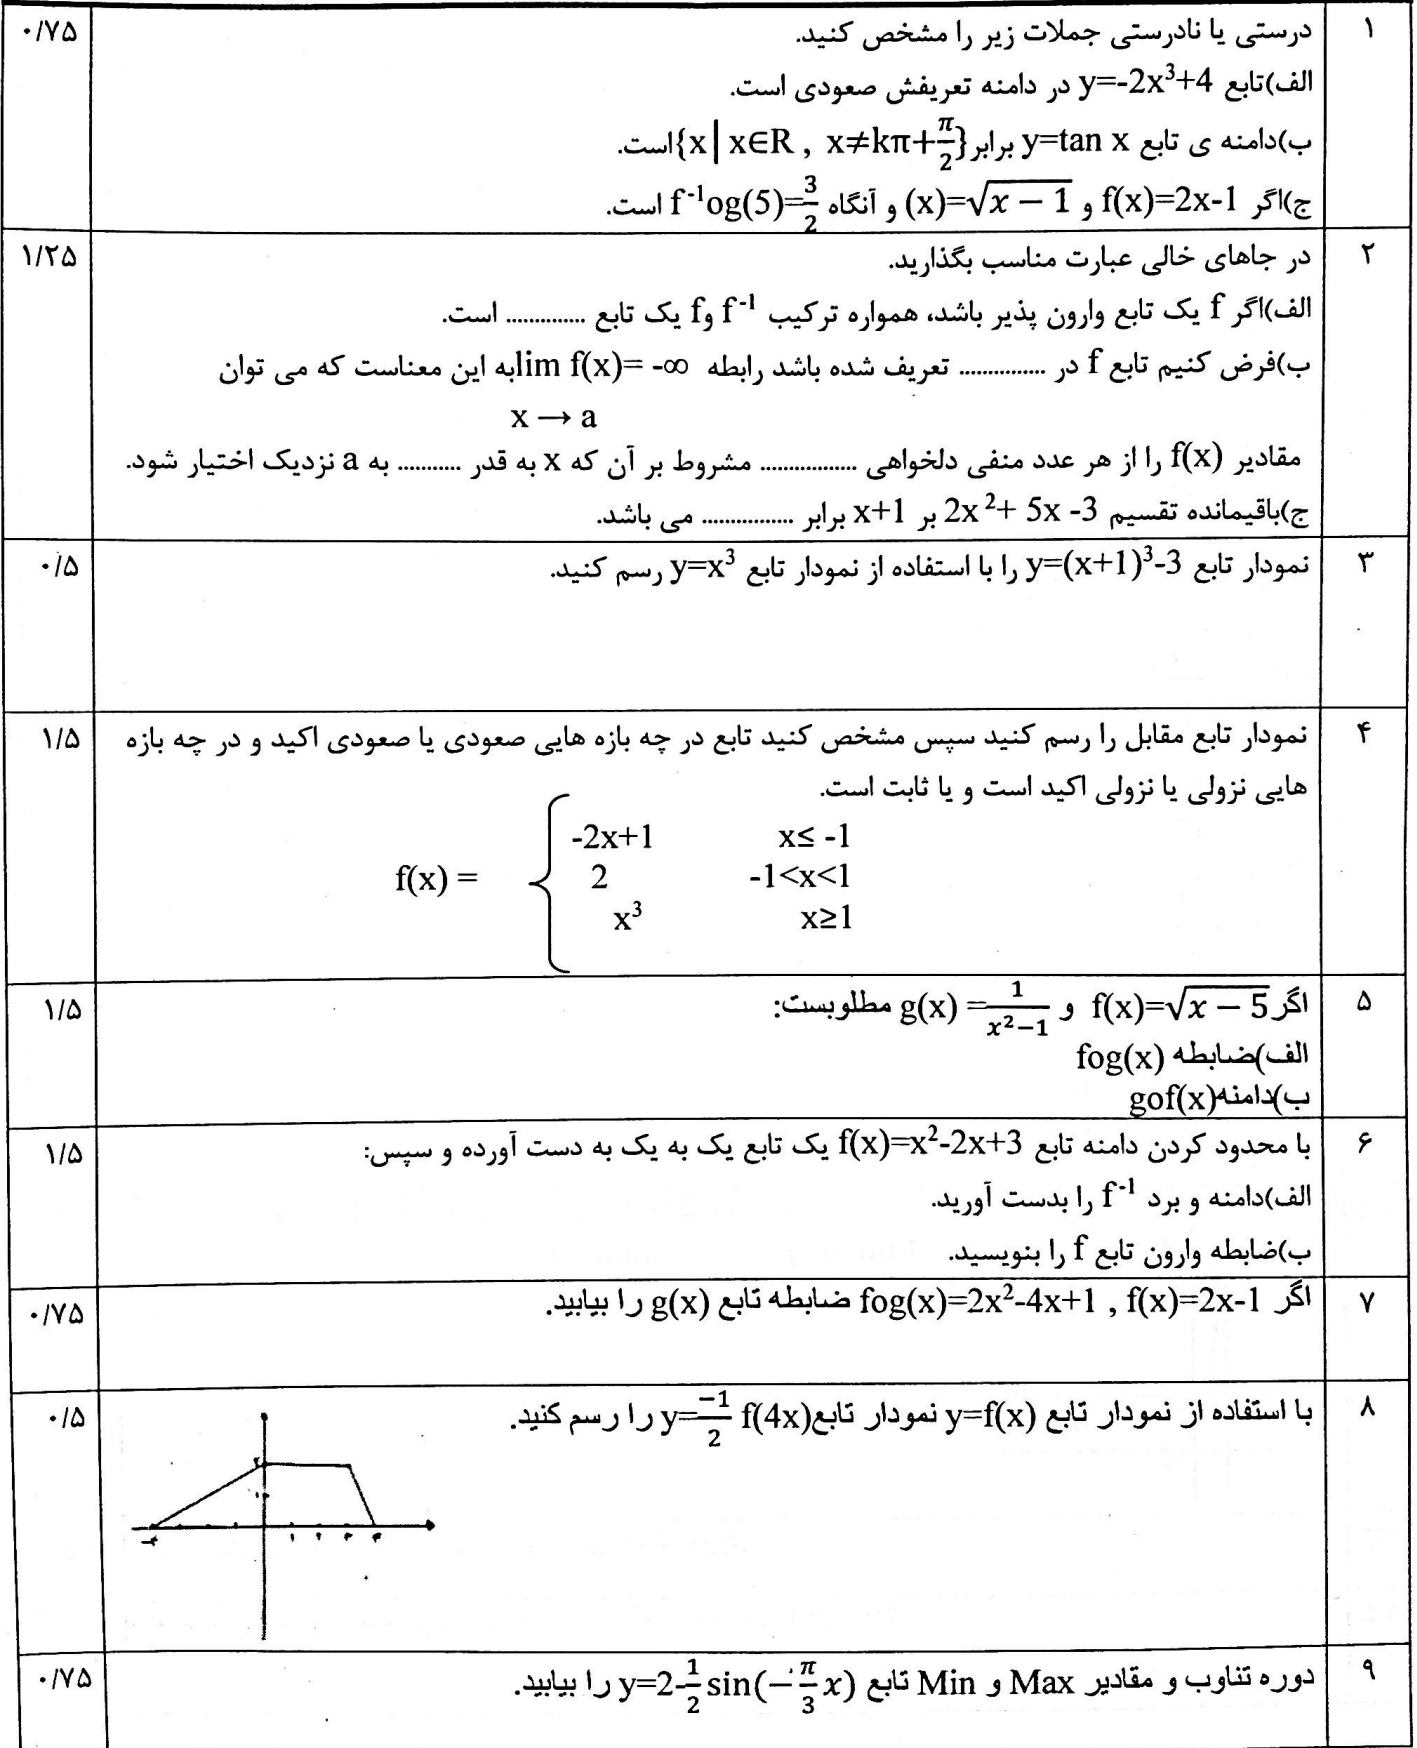 ۱ درستی یا نادرستی جملات زیر را مشخص کنید. ۰/۷۵
الف)تابع y=-2x³+4 در دامنه تعریفش صعودی است.
ب)دامنه ی تابع y=tan x برابر{x | x∈R , x≠kπ+π/2}است.
ج)اگر f(x)=2x-1 و (x)=√(x − 1) و آنگاه f⁻¹og(5)=3/2 است.
۲ در جاهای خالی عبارت مناسب بگذارید. ۱/۲۵
الف)اگر f یک تابع وارون پذیر باشد، همواره ترکیب f⁻¹ وf یک تابع .............. است.
ب)فرض کنیم تابع f در ............... تعریف شده باشد رابطه lim f(x)= -∞به این معناست که می توان
x → a
مقادیر f(x) را از هر عدد منفی دلخواهی ................. مشروط بر آن که x به قدر ........... به a نزدیک اختیار شود.
ج)باقیمانده تقسیم 2x²+ 5x -3 بر x+1 برابر ................ می باشد.
۳ نمودار تابع y=(x+1)³-3 را با استفاده از نمودار تابع y=x³ رسم کنید. ۰/۵
۴ نمودار تابع مقابل را رسم کنید سپس مشخص کنید تابع در چه بازه هایی صعودی یا صعودی اکید و در چه بازه ۱/۵
هایی نزولی یا نزولی اکید است و یا ثابت است.
-2x+1 x≤ -1
f(x) = { 2 -1<x<1
x³ x≥1
۵ اگر f(x)=√(x − 5) و g(x) =1/(x²−1) مطلوبست: ۱/۵
الف)ضابطه fog(x)
ب)دامنه gof(x)
۶ با محدود کردن دامنه تابع f(x)=x²-2x+3 یک تابع یک به یک به دست آورده و سپس: ۱/۵
الف)دامنه و برد f⁻¹ را بدست آورید.
ب)ضابطه وارون تابع f را بنویسید.
۷ اگر fog(x)=2x²-4x+1 , f(x)=2x-1 ضابطه تابع g(x) را بیابید. ۰/۷۵
۸ با استفاده از نمودار تابع y=f(x) نمودار تابع y=−1/2 f(4x) را رسم کنید. ۰/۵
۲
۱
-۴ ۱ ۲ ۳ ۴
۹ دوره تناوب و مقادیر Max و Min تابع y=2-1/2 sin(−π/3 x) را بیابید. ۰/۷۵